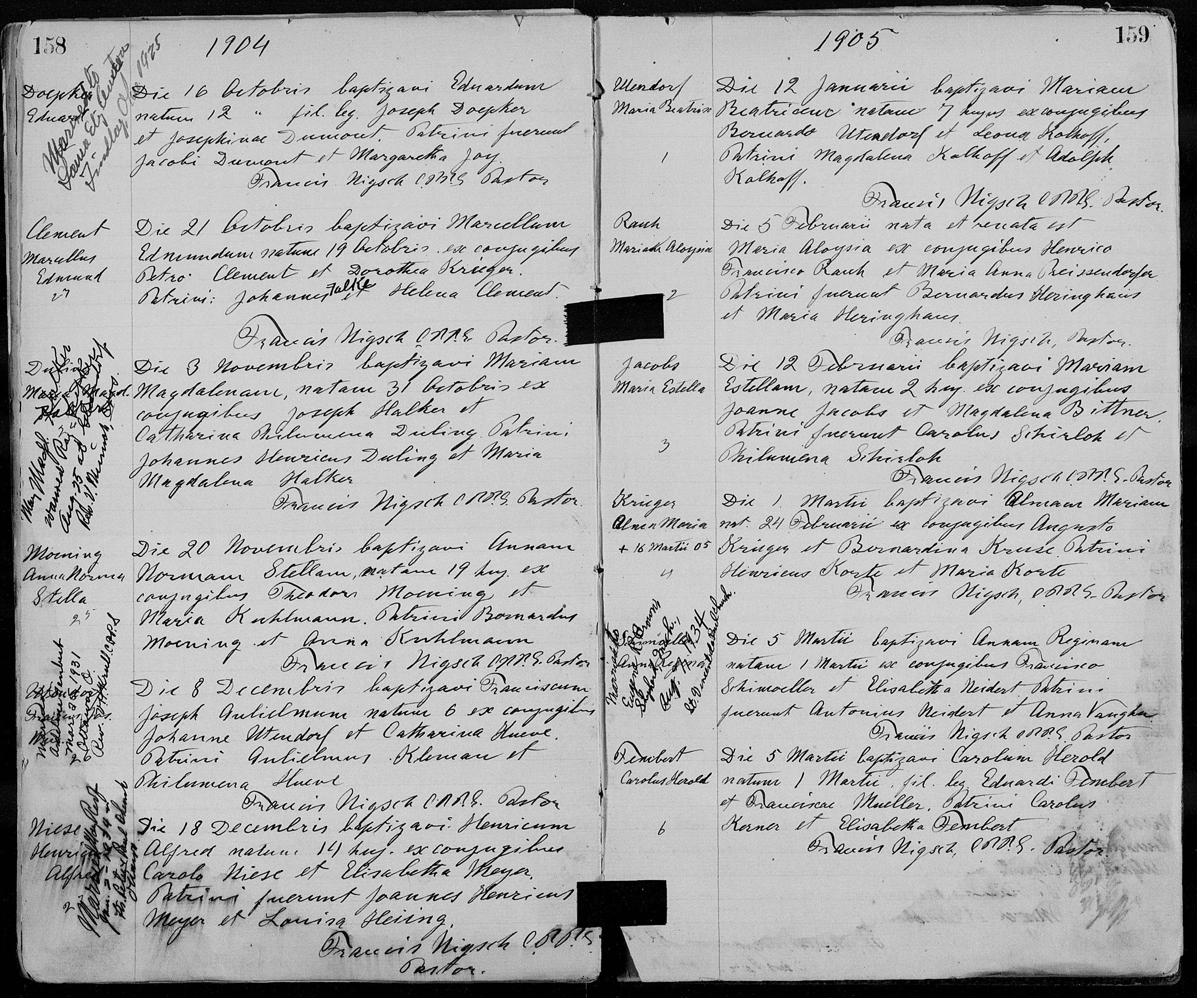 158
1904
Doepker
Eduard
Die 16 Octobris baptizavi Eduardum
natum 12 " fil. leg. Joseph Doepker
et Josephinae Dumont. Patrini fuerunt
Jacobi Dumont et Margaretha Joy.
Francis Nigsch C.PP.S Pastor
Clement
Marcellus
Edmund
Die 21 Octobris baptizavi Marcellum
Edmundum natum 19 Octobris ex conjugibus
Petro Clement et Dorothea Krieger.
Patrini: Johannes Falke et Helena Clement.
Francis Nigsch C.PP.S. Pastor.
Die 3 Novembris baptizavi Mariam
Magdalenam, natam 31 Octobris ex
conjugibus Joseph Halker et
Catharina Philumena Duling. Patrini
Johannes Henricus Duling et Maria
Magdalena Halker
Francis Nigsch C.PP.S Pastor.
Moening
Anna Norma
Stella
25
Die 20 Novembris baptizavi Annam
Normam Stellam, natam 19 huj. ex
conjugibus Theodor Moening et
Maria Kuhlmann. Patrini Bernardus
Moening et Anna Kuhlmann
Francis Nigsch C.PP.S. Pastor
Die 8 Decembris baptizavi Franciscum
Joseph Gulielmum natum 6 ex conjugibus
Johanne Utendorf et Catharina Hueve.
Patrini Gulielmus Kleman et
Philumena Hueve
Francis Nigsch C.PP.S. Pastor
Niese
Henricus
Alfred
Die 18 Decembris baptizavi Henricum
Alfred natum 14 huj. ex conjugibus
Carolo Niese et Elisabetha Meyer.
Patrini fuerunt Joannes Henricus
Meyer et Louisa Heiing
Francis Nigsch C.PP.S.
Pastor.
1905
159
Utendorf
Maria Beatrix
1
Die 12 Januarii baptizavi Mariam
Beatricem natam 7 hujus ex conjugibus
Bernardo Utendorf et Leona Kalhoff.
Patrini Magdalena Kalhoff et Adolph
Kalhoff.
Francis Nigsch C.PP.S. Pastor.
Rauh
Maria Aloysia
2
Die 5 Februarii nata et renata est
Maria Aloysia ex conjugibus Henrico
Francisco Rauh et Maria Anna Reissendorfer
Patrini fuerunt Bernardus Heringhaus
et Maria Heringhaus.
Francis Nigsch, Pastor.
Jacobs
Maria Estella
3
Die 12 Februarii baptizavi Mariam
Estellam, natam 2 huj. ex conjugibus
Joanne Jacobs et Magdalena Bittner.
Patrini fuerunt Carolus Schirloh et
Philumena Schirloh
Francis Nigsch C.PP.S. Pastor
Krieger
Alma Maria
+ 16 Martii 05
4
Die 1. Martii baptizavi Almam Mariam
nat. 24 Februarii ex conjugibus Augusto
Krieger et Bernardina Kruse Patrini
Henricus Korte et Maria Korte
Francis Nigsch, C.PP.S Pastor
Die 5 Martii baptizavi Annam Reginam
natam 1 Martii ex conjugibus Francisco
Schimoeller et Elisabetha Neidert Patrini
fuerunt Antonius Neidert et Anna Vaughn
Francis Nigsch C.PP.S Pastor
Fembert
Carolus Herold
6
Die 5 Martii baptizavi Carolum Herold
natum 1 Martii, fil. leg Eduardi Fembert
et Franciscae Mueller, Patrini Carolus
Kerner et Elisabetha Fembert
Francis Nigsch, C.PP.S. Pastor